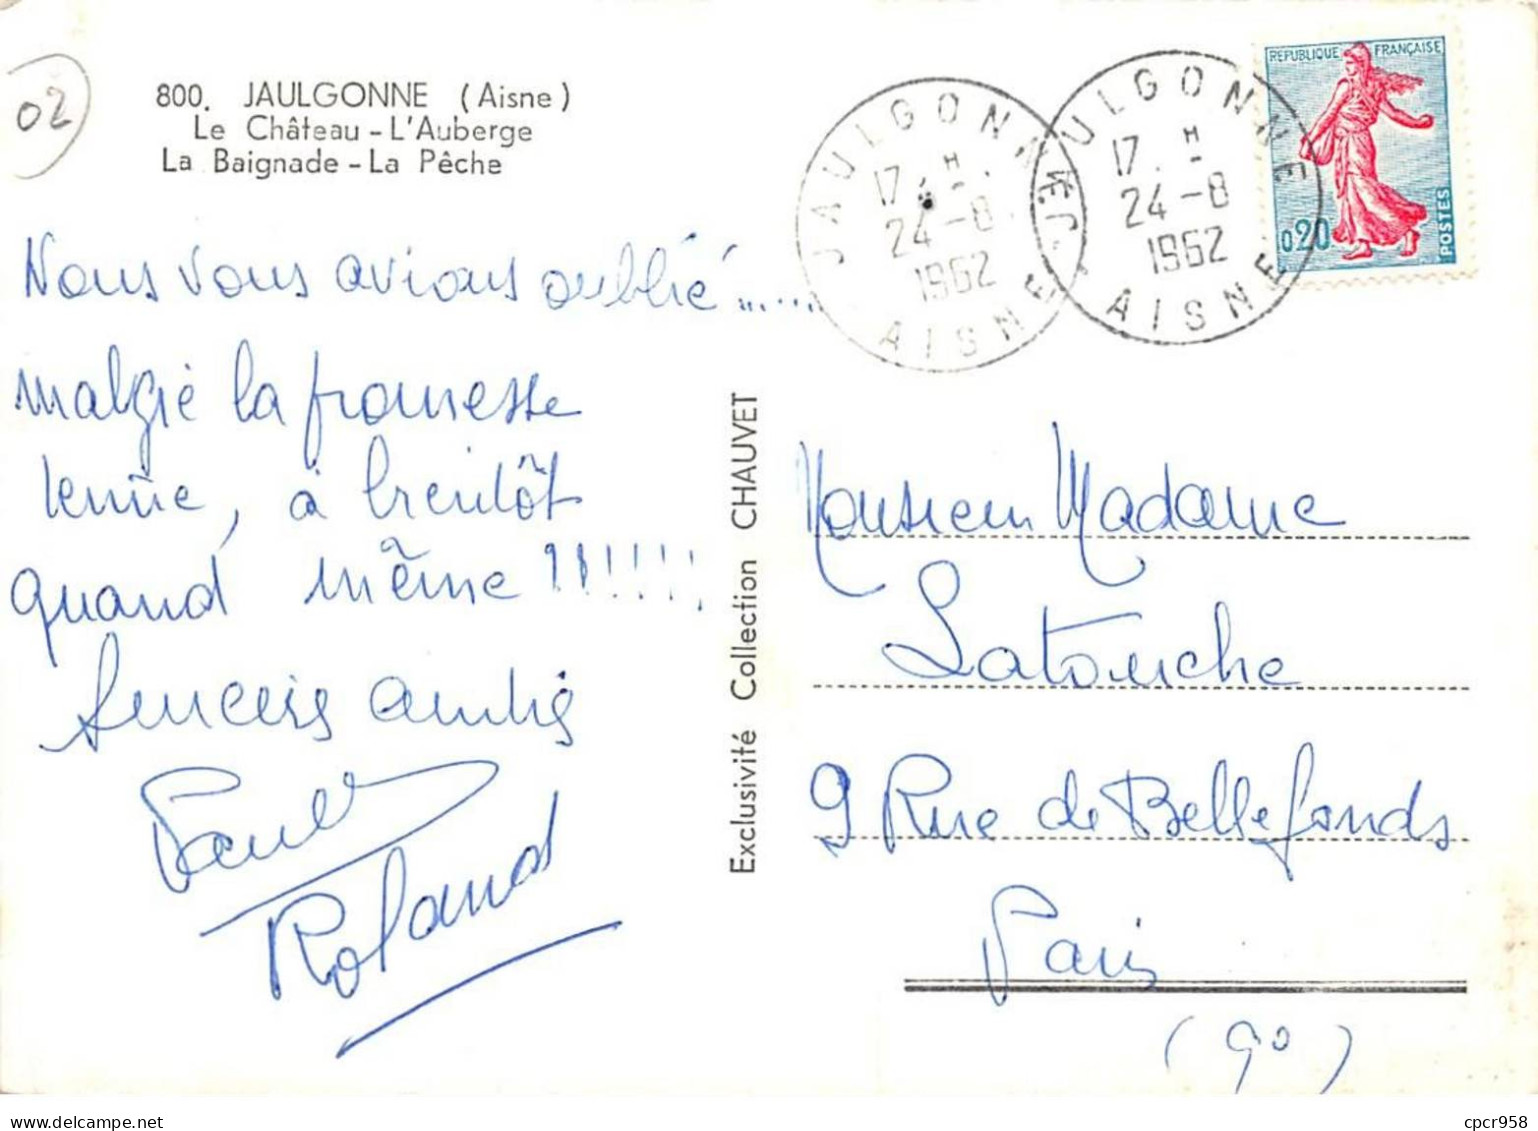 02
800. JAULGONNE (Aisne)
Le Château - L'Auberge
La Baignade - La Pêche
Nous vous avions oublié......
malgré la promesse
tenue, à bientôt
quand même !!!!!!!
Sincères amitiés
Roland
Exclusivité Collection CHAUVET
JAULGONNE
17 H
24-8
1962
AISNE
JAULGONNE
17 H
24-8
1962
AISNE
REPUBLIQUE FRANÇAISE
0,20
POSTES
Monsieur Madame
Latouche
9 Rue de Bellefonds
Paris
(9°)
cpcr958